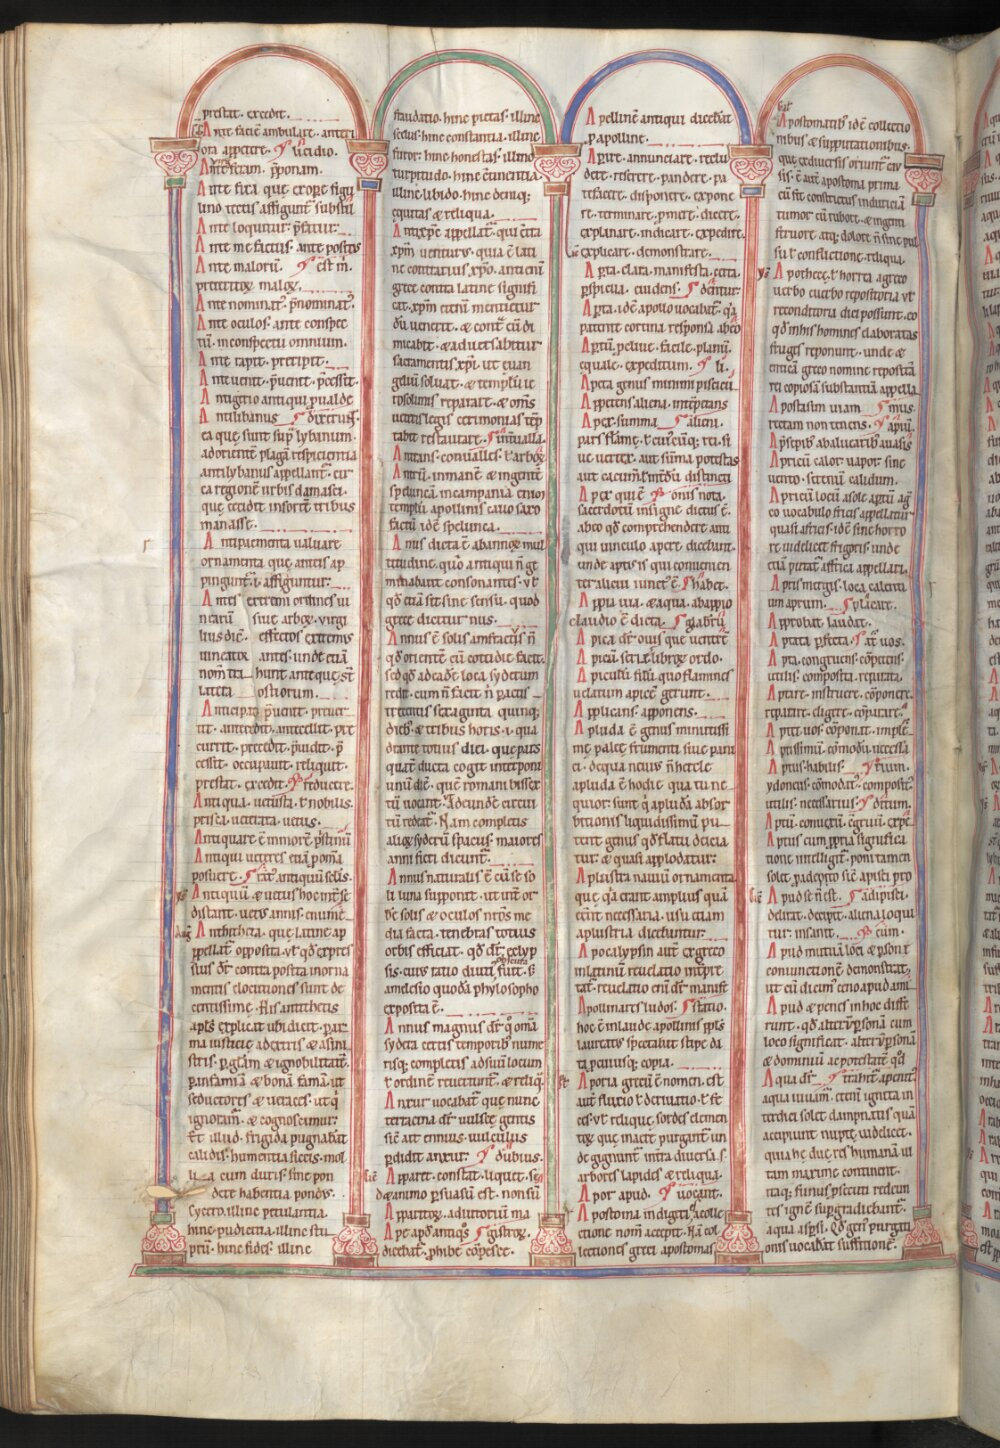 prestat. excedit.
Ante faciē ambulare. anteri
ora appetere. ul cidio.
Ante feram. p̄ponam.
Ante fixa que exore figu
lino tectis affigunt̄
Ante loquitur. p̄fatur.
Ante me factus. ante positus
Ante malorū. est m̄.
preteritox malox.
Ante nominat᷒. p̄nominat᷒.
Ante oculos. ante conspec
tū. inconspectu omnium.
Ante rapit. preripit.
Ante uenit. p̄uenit. p̄cessit.
Antigrio antiqui
Antilibanus dixerūt.
ea que sunt sup̄ lybanum.
adorientē plagā respicientia
antilybanus appellant̄. cir
ca regionē urbis damasci.
que cecidit insortē tribus
manasse.
Antipagmenta ualuarū
ornamenta que anteis ap
pingunt̄. i. affiguntur.
Antes extremi ordines ui
nearū siue arbox. virgi
lius dic̄. effectos extremus
uineatox antes. unde etiā
latera ostiorum.
Anticipat. p̄uenit. preuer
tit. antecedit. antecellit. pre
currit. precedit. p̄uidit. p̄
cessit. occupauit. reliquit.
prestat. excedit. reducere.
Antiqua. uetusta. ł nobilis.
prisca. ueterata. uetus.
Antiquare ē inmorē p̄stinū
Antiqui ueteres etiā pomā
posuere. rat᷒ antiquū solis.
Antiquū & uetus hoc int̄ se
distant. uetus annis. enume
Antitheta. que latine ap
pellat̄ opposita. vł qd expres
sius dr̄ contra posita inorna
mentis elocutiones sunt de
centissime. His antithetis
apls̄ explicat ubi dicit. Par
ma iusticie adextris & asini
stris. p. glam & ignobilitatē.
Pansamiā & bonā famā. ut
seductores & ueraces. ut q̄
ignoramꝰ. & cognoscimur.
Et illud. frigida pugnabāt
calidis. humentia siccis. mol
lia cum duris. sine pon
dere habentia pondus.
Cycero. illine petulantia.
hinc pudicitia. illine stu
prū. hinc fides. illine
fraudatio. hinc pietas. illine
scelus. hinc constantia. illine
furor. hinc honestas. illine
turpitudo. hinc cōtinentia
illine libido. hinc deniq;
equitas & reliqua.
Antixpc̄ appellat᷒. qui cōtra
xpm̄ uenturus. quia ē lati
ne contrarius xp̄o. anti enī
grece contra latine signifi
cat. xpm̄ etenī mentietur
dū uenerit. & cont̄ eū di
micabit. & aduersabitur
sacramentis xpi. ut euan
geliū soluat. & templū ie
rosolimis reparare. & om̄s
ueteris legis cerimonias tēp
tabit restaurare. ininualla.
Antrans. conualles. ł arbox
Antrū. inmanē & ingentē
speluncā incampania cenio
templū apollinis cauo saxo
factū idē spelunca.
Anus dicta ē abannox mul
titudine. quo antiqui n̄ ge
minabant consonantes. vł
qd etiā sit sine sensu. quod
grece dicitur nus.
Annus ē solis amfractus n̄
qd orientē eū cottidie facit.
sed qd adeade loca syderum
redit. cum n̄ facit n̄ pactis
trecentis sexaginta quinq;
dieb; & tribus horis. i. qua
drante totius diei. que pars
quartū dieū cogit interponi
unū diē. que romani bissex
tū uocant. Adeunde circui
tū redeat. Nam completis
alioꝝ syderū spaciis. maiores
anni fieri dicunt.
Annus naturalis ē cū se so
li luna supponit. ut int̄ or
bē solis & oculos nr̄os me
dia facta. tenebras totius
orbis efficiat. qd dr̄ eclyp
sis. cuius ratio diuti fuit. s̄
amelesio quodā phylosopho
exposita ē.
Annus magnus dr̄ q̄ oma
sydera certis temporib; nume
risq; completis adsuū locum
ł ordinē reuertunt̄. & reliq̄.
Anxur uocabat̄ que nunc
terracina dr̄ uulsce gentis
sic̄ ait ennius. uulculus
perdidit anxur. dubius.
Apparet. constat. liquet. se
deanimo p̄suasū est. non sū
Apparitox. adiutoriū ma
Ape apd antiq̄s gistrox.
dicebat᷒. phibe. cōpesce.
Apellinē antiqui dicebāt
p̄ apolline.
Aperire. annunciare. reclu
dere. reserere. pandere. pa
tefacere. disponere. expone
re. terminare. p̄mere. dicere.
explanare. indicare. expedire.
explicare. demonstrare.
Aperta. clara. manifesta. certa.
perspicua. euidens. dicitur.
Aperta. idē apollo uocabat᷒. q̄a
patente cortina responsa abeo
Aptū. peluie. facile. planū.
equale. expeditum. li.
Apeca genus minimi pisciculi
Appetens aliena. int̄ceptans
Apex. summa. aliena.
pars flame. ł cuiꝰcūq; rei. si
ue uertex. aut sūma potestas
aut cacumē mundi distincti
Apex qui ē onis nota.
sacerdotū insigne dictus ē.
abeo qd comprehendere anti
qui uinculo apere dicebant.
unde aptus is qui conuenien
ter alicui iunctꝰ ē. habet.
Appia uia. & aqua. abappio
claudio ē dicta. glabrū.
Apica dr̄ ouis que uentrē
Apicū. seria. librox ordo.
Apiculū filū quo flamines
uelatum apicē gerunt.
Applicans. apponens.
Apluda ē genus minutissi
me palee frumenti siue pani
ci. dequa neuius n̄ hercle
apluda ē hodie qua tu ne
quior. sunt q̄ apludā absor
bitionis liquidissimū pu
tent genus. qd flatu deicia
tur. & quasi applodatur.
Aplustra nauiū ornamenta
que q̄a erant amplius quā
eēnt necessaria. usu etiam
aplustria dicebuntur.
Apocalypsin autē ex greco
inlatinū reuelatio int̄pre
tat᷒. reuelatio enī dr̄ manifest
Apollinares ludos. statio.
hoc ē inlaude apollinis ppls̄
laureatus spectabat stipe da
ta peiusq; copia.
Aporia grecū ē nomen. est
autē fluxio ł deriuatio. ł fe
ces. vł relique sordes elemen
tox que inacie purgant᷒. un
de gignunt᷒ intra diuersa s.
arbores lapides & reliqua.
Apor apud. uocant.
Apostoma in digiti acolle
ctione nom̄ accepit. Nā col
lectiones greci apostomas
Apostomatib᷒ idē collectio
nibus & suppurationibus.
que exdiuersis oriunt᷒ cau
sis. ē autē apostoma prima
cū fit constrictus indurecia
tumor cū rubore & ingenti
feruore atq; dolore n̄ sine pul
su ł conflictione. reliqua.
Apothece. ł horrea agreco
uerbo euerbo repositoria vł
reconditoria dici possunt. eo
qd inhis homines elaboratas
fruges reponunt. unde &
entica greco nomine reposita
rei copiosa substantia appella
Apostasim uiam. mus.
rectam non tenens. apiū.
Apsepib; abaluearib; auasis.
Apricū calor. uapor. sine
uento. serenū calidum.
Apricū locū asole aptū aq̄
eo uocabulo frices appellatur
quasi africes. idē sine horro
re uidelicet frigoris. unde
etiā putāt affrica appellari.
Apris mergis. loca calenti
um aprum. plicare.
Approbat. laudat.
Apta ta perfecta. at̄ uos.
Apta. congruens. cōpetens.
utilis. composita. reputata.
Aptare. instruere. cōponere.
reparare. eligere. cōparare.
Aptet uos. cōponat. imple
Aptissimū. cōmodū. necessa
Aptus. habilis. rium.
ydoneus. cōmodat᷒. composit᷒.
utilis. necessarius. detum.
Aptū. conuexū. ēgruū. expe
Aptus cum ppria significa
tione intelligit᷒. poni tamen
solet p̄adepto. sic̄ apisci pro
Apud se n̄ est. adipisci.
delirat. decipit. aliena loqui
tur. insanit. cum.
Apud mutuū loci & p̄sone
coniunctionē demonstrat.
ut cū dicim᷒ ceno apud ami
Apud & penes inhoc diffe
runt. qd alter p̄sonā cum
loco significat. alter p̄sonā
& dominiū ac potestatē q̄sī
Aqua dr̄ trahit᷒ apentᷓ.
aqua iuuiam. etenī ignita in
terdici solet dampnatis quā
accipiunt nupte. uidelicet.
quia he due res humanā ui
tam maxime continent.
itaq; funus p̄secuti redeun
tes ignē supgradiebant᷒.
aqua aspsi. Qd gen᷒ purgati
onis uocabāt suffitionē.